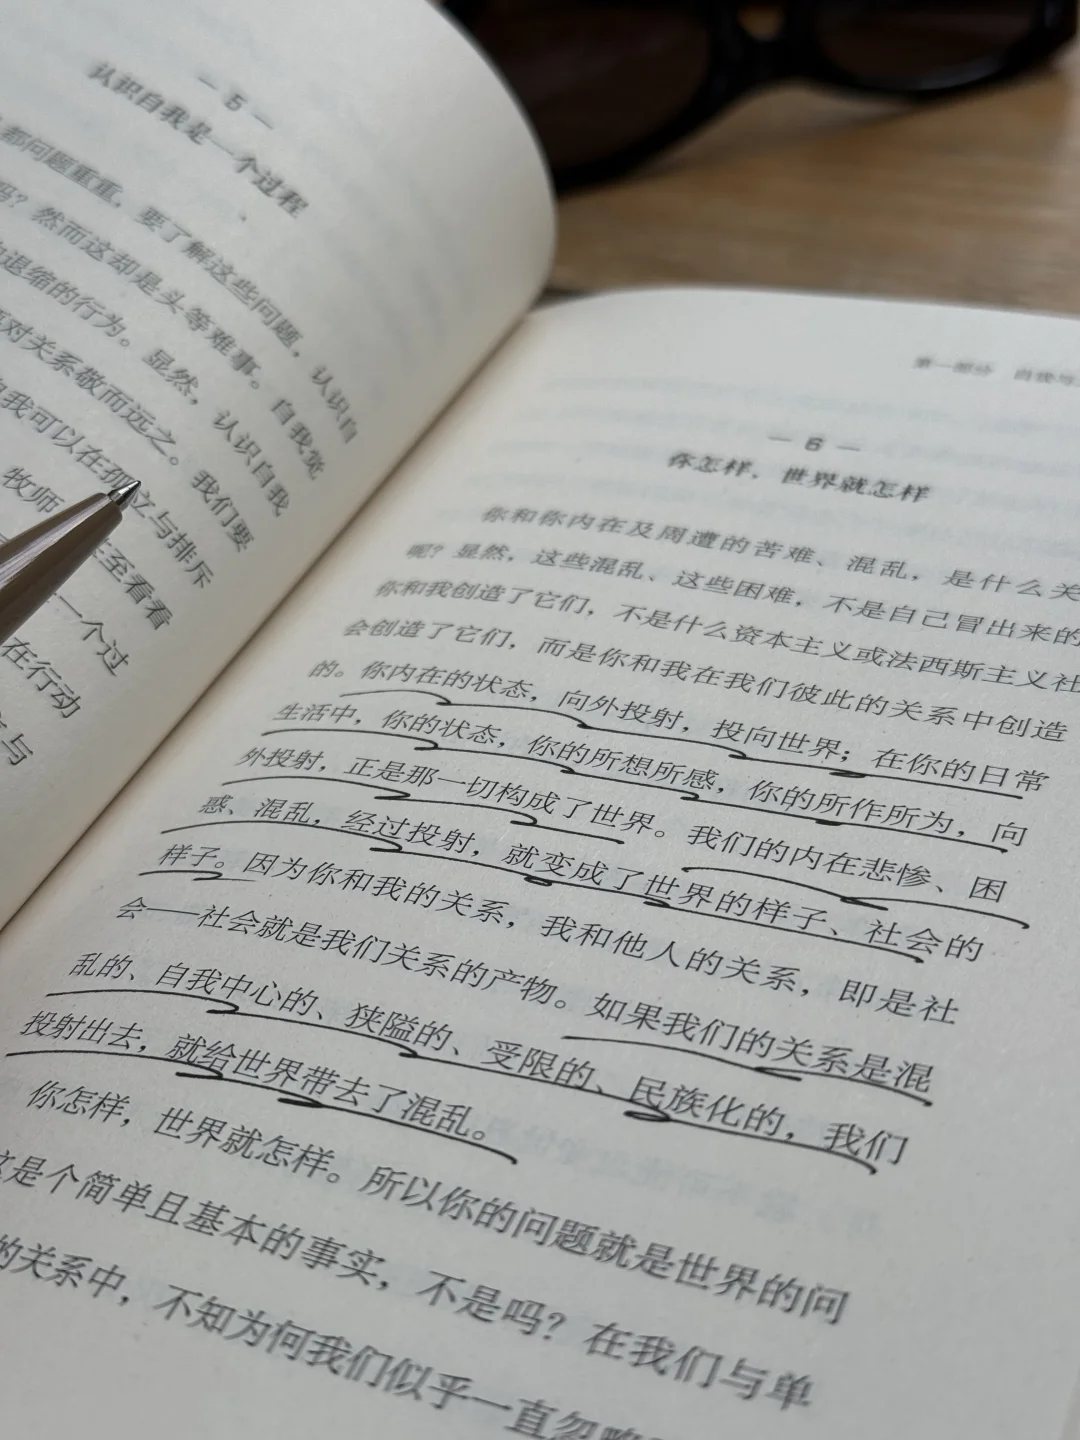 — 5 —
认识自我是一个过程
都问题重重，要了解这些问题，认识自
吗？然而这却是头等难事。自我觉
退缩的行为。显然，认识自我
对关系敬而远之。我们要
我可以在孤立与排斥
牧师
至看看
一个过
在行动
与
第一部分 自我与
— 6 —
你怎样，世界就怎样
你和你内在及周遭的苦难、混乱，是什么关
呢？显然，这些混乱、这些困难，不是自己冒出来的
你和我创造了它们，不是什么资本主义或法西斯主义社
会创造了它们，而是你和我在我们彼此的关系中创造
的。你内在的状态，向外投射，投向世界；在你的日常
生活中，你的状态，你的所想所感，你的所作所为，向
外投射，正是那一切构成了世界。我们的内在悲惨、困
惑、混乱，经过投射，就变成了世界的样子、社会的
样子。因为你和我的关系，我和他人的关系，即是社
会——社会就是我们关系的产物。如果我们的关系是混
乱的、自我中心的、狭隘的、受限的、民族化的，我们
投射出去，就给世界带去了混乱。
你怎样，世界就怎样。所以你的问题就是世界的问
这是个简单且基本的事实，不是吗？在我们与单
的关系中，不知为何我们似乎一直忽略